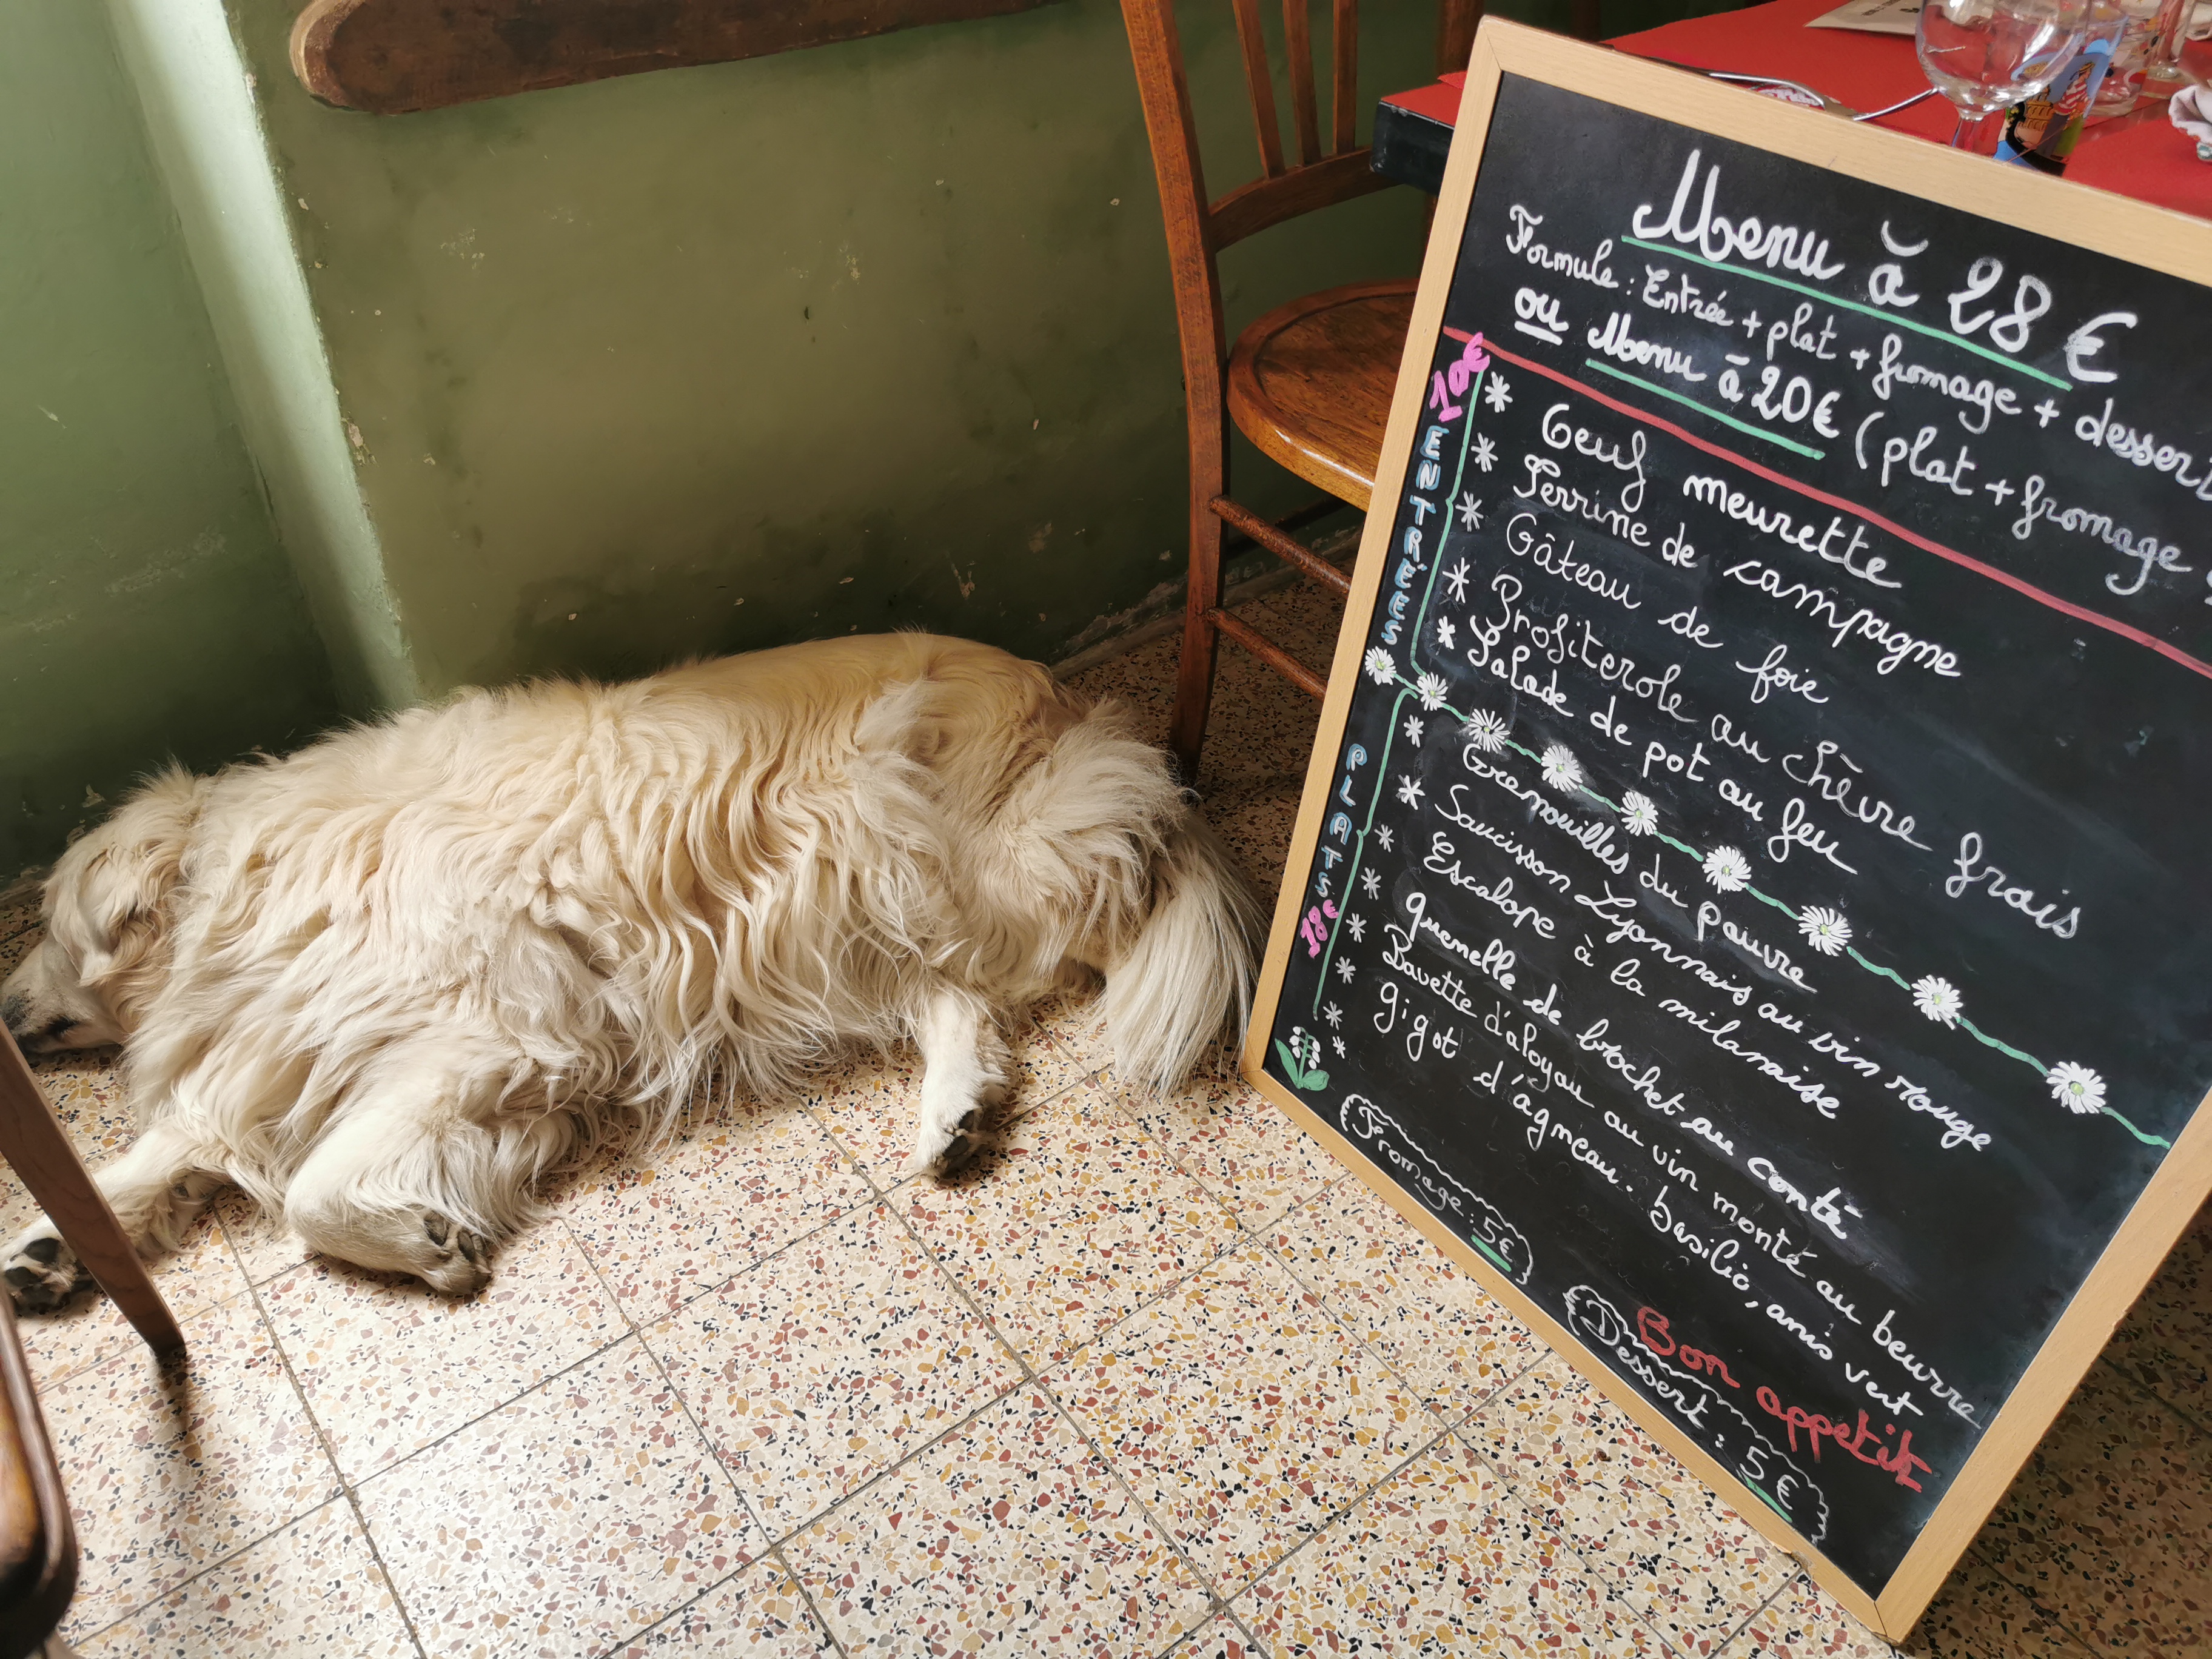 Menu à 28 €
Formule : Entrée + plat + fromage + dessert
ou Menu à 20€ (plat + fromage
10€
ENTRÉES
* Oeuf meurette
* Terrine de campagne
* Gâteau de foie
* Profiterole au chèvre frais
* Salade de pot au feu
PLATS
18€
* Grenouilles du pauvre
* Saucisson Lyonnais au vin rouge
* Escalope à la milanaise
* quenelle de brochet au comté
* Bavette d'aloyau au vin monté au beurre
* gigot d'agneau. basilic, anis vert
Fromage : 5€
Dessert : 5€
Bon appetit